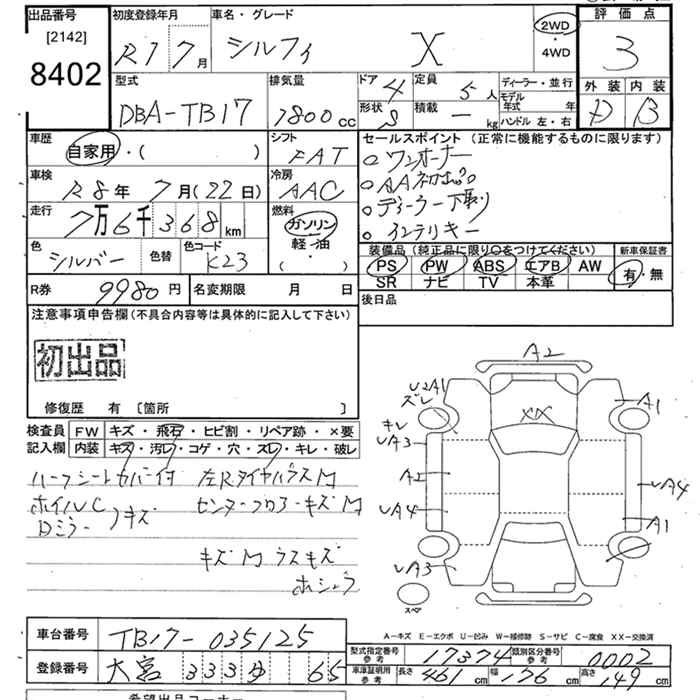 出品番号
[2142]
8402
初度登録年月
R1 7月
車名・グレード
シルフィ X
2WD
・4WD
評価点
3
外装 内装
D B
型式
DBA-TB17
排気量
1800cc
ドア 4
形状 S
定員 5人
積載 - kg
ディーラー・並行
モデル年式 年
ハンドル 左・右
車歴
自家用・( )
シフト
FAT
車検
R8年 7月(22日)
冷房
AAC
走行
7万6千368km
燃料
ガソリン
軽・油
・( )
色
シルバー
色替
色コード
K23
セールスポイント (正常に機能するものに限ります)
○ワンオーナー
○AA初出品
○ディーラー下取り
○インテリキー
装備品 (純正品に限り○をつけてください)
PS PW ABS エアB AW
SR ナビ TV 本革
新車保証書
有・無
R券 9980円
名変期限 月 日
後日品
注意事項申告欄(不具合内容等は具体的に記入して下さい)
初出品
修復歴 有 〔箇所 〕
検査員記入欄
FW キズ・飛石・ヒビ割・リペア跡・×要
内装 キズ・汚レ・コゲ・穴・スレ・キレ・破レ
ハーフシートカバー付 左Rタイヤハウス M
ホイルC
Dミラー キズ
センターフロアーキズ M
キズ M ウスキズ
ホシュウ
A2
U2A1
ズレ
キレ
UA3
A2
UA4
UA3
XX
A1
UA4
A1
スペア
A-キズ E-エクボ U-凹み W-補修跡 S-サビ C-腐食 XX-交換済
車台番号 TB17-035125
登録番号 大宮 333 ゆ 65
型式指定番号 参考 17374
類別区分番号 参考 0002
車庫証明用 参考 長さ 461cm 幅 176cm 高さ 149cm
希望出品コーナー